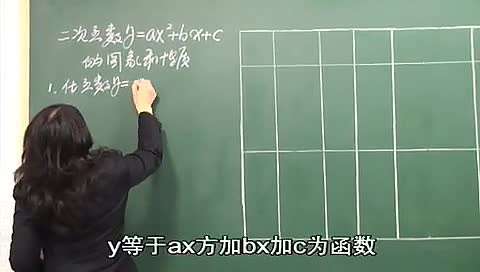 二次函数y=ax²+bx+c
的图象和性质
1. 化函数y=
y等于ax方加bx加c为函数